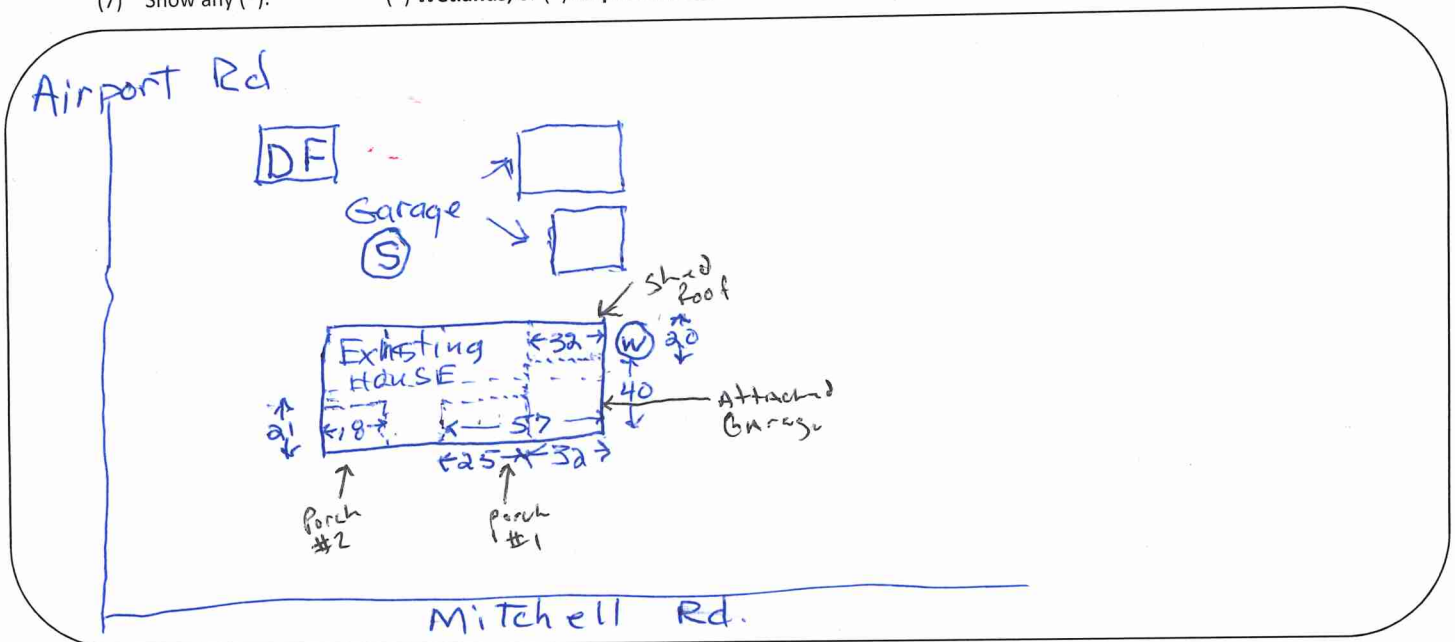 (7) Show any
Airport Rd
DF
Garage
S
Shed
Roof
Existing
House
32
W
20
40
Attached
Garage
21
18
57
25 32
Porch
#2
Porch
#1
Mitchell Rd.